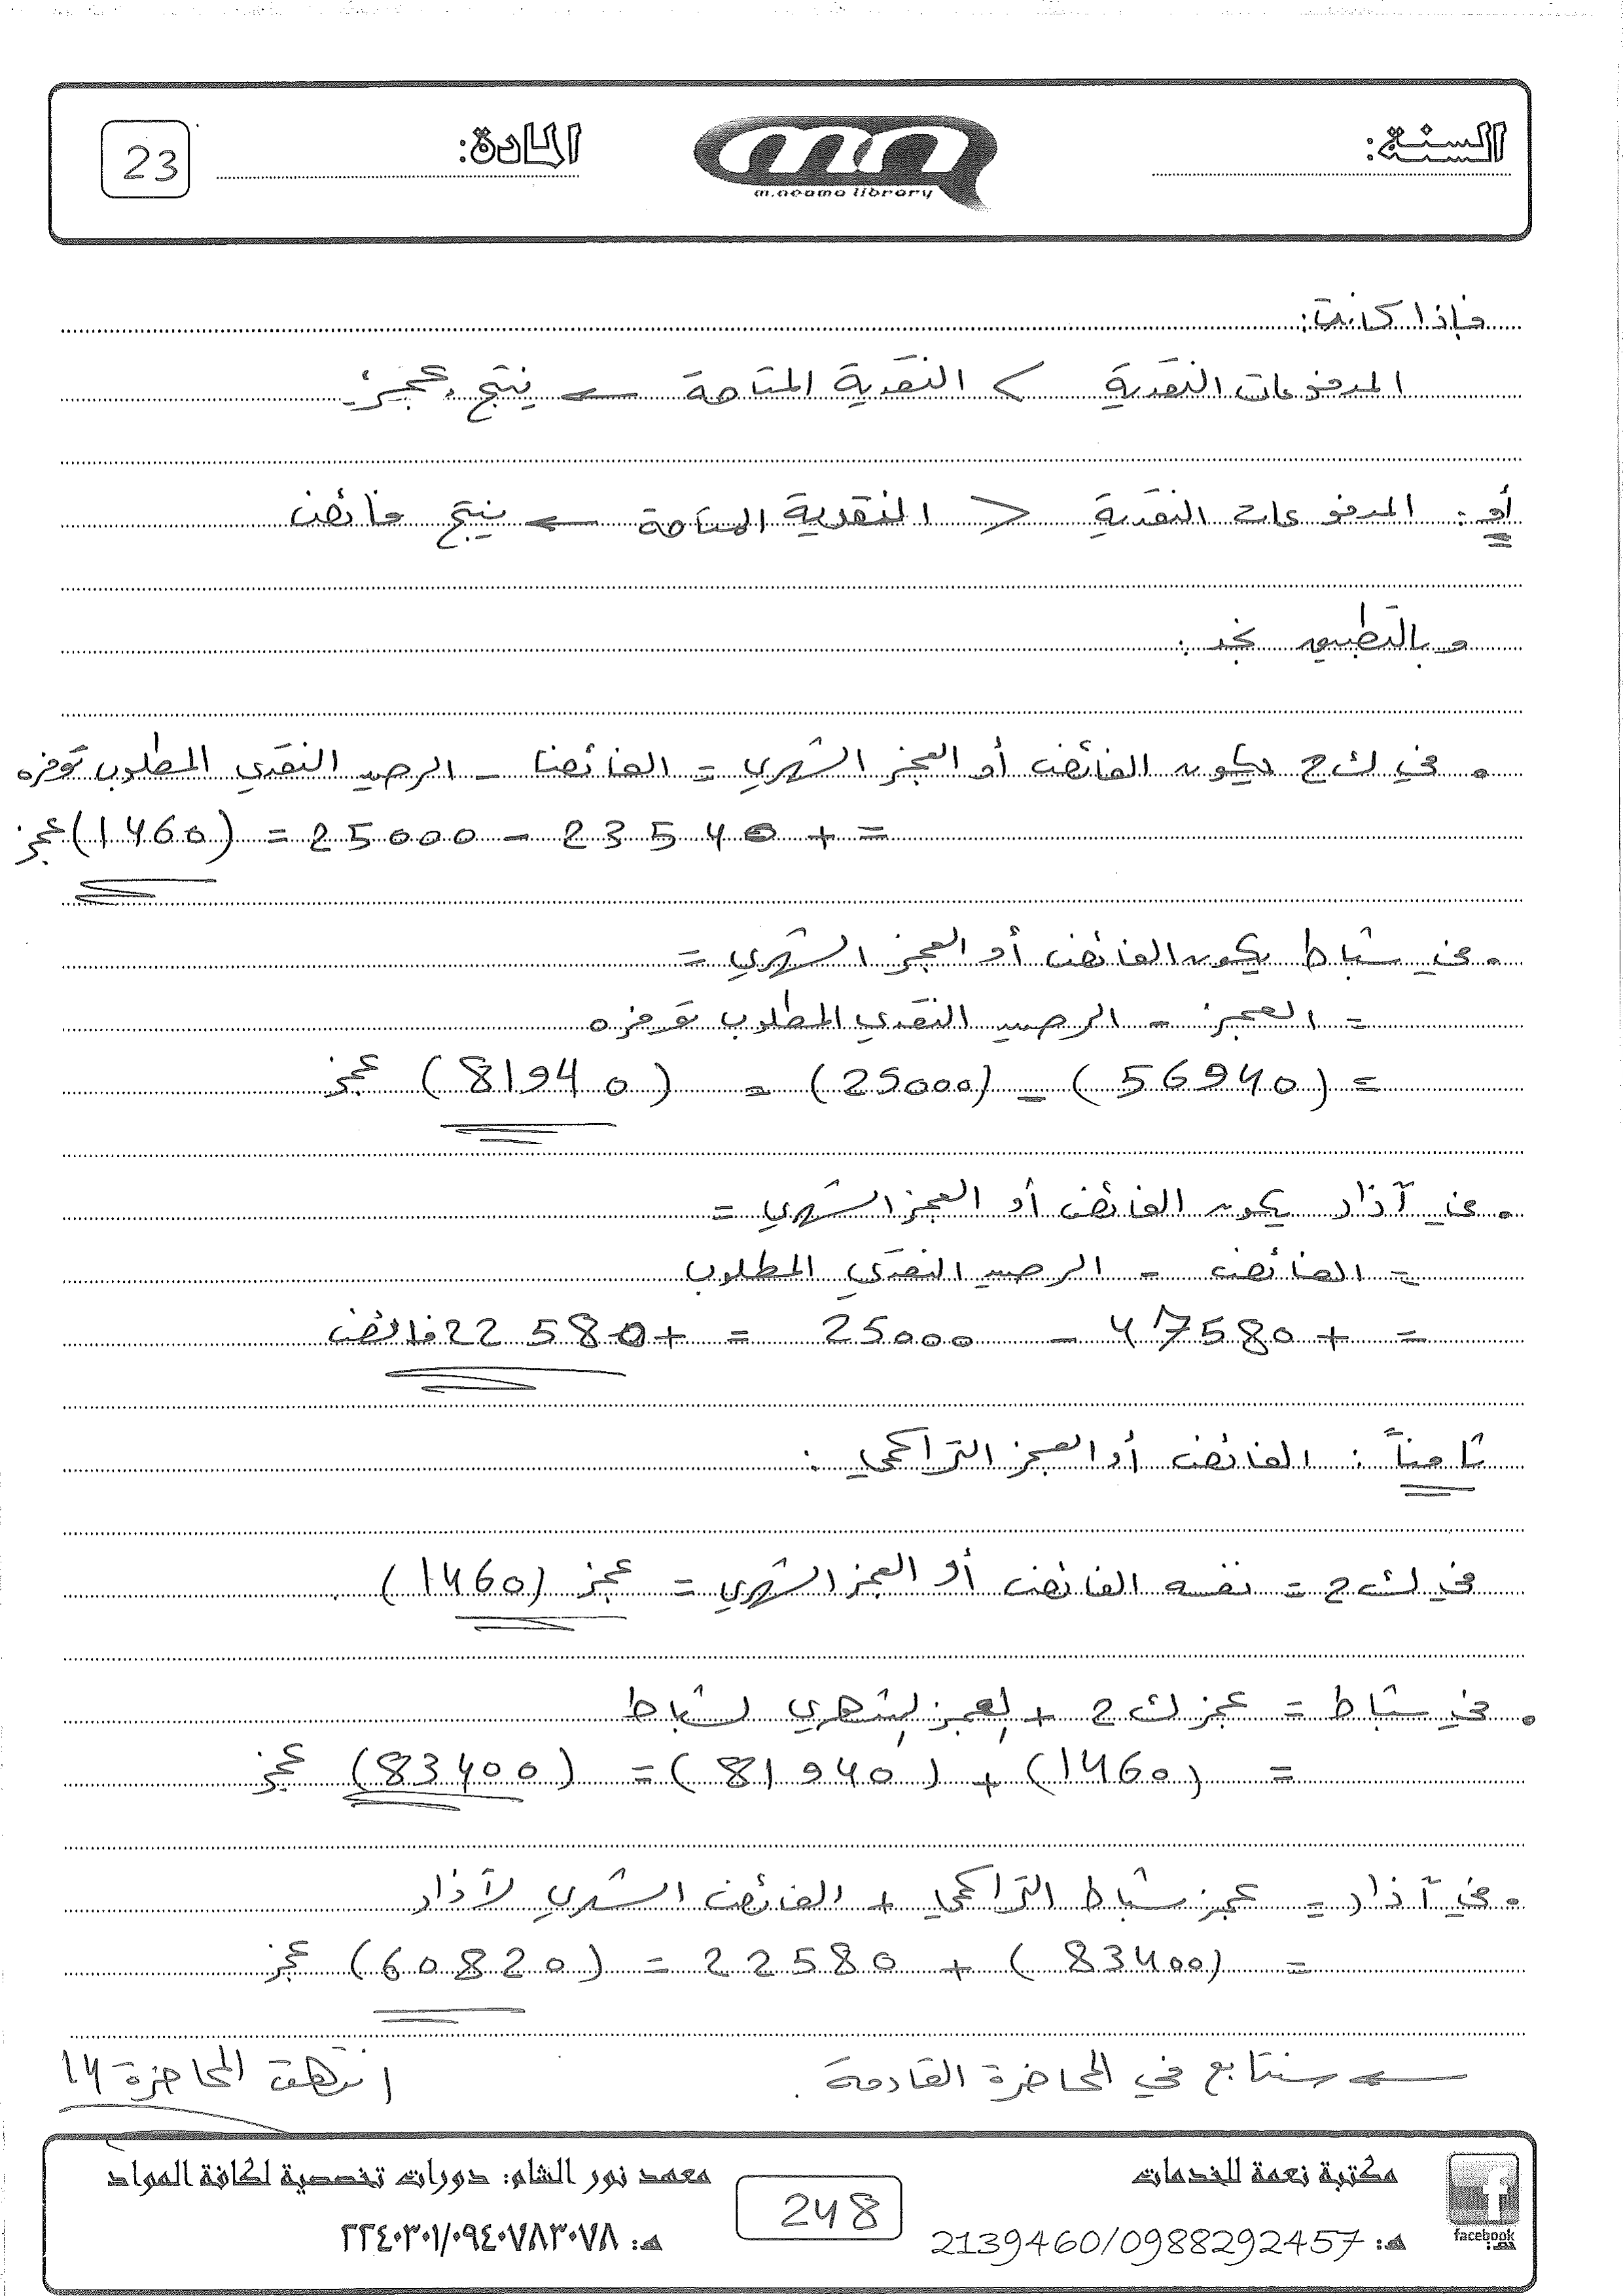 السنة:
m.neama library
المادة:
23
فإذا كانت:
المدفوعات النقدية > النقدية المتاحة ← ينتج عجز.
أو: المدفوعات النقدية < النقدية المتاحة ← ينتج فائض
وبالتطبيق نجد:
• في ك2 يكون الفائض أو العجز الشهري = الفائض - الرصيد النقدي المطلوب توفره
= + 23540 - 25000 = (1460) عجز
• في شباط يكون الفائض أو العجز الشهري =
= العجز - الرصيد النقدي المطلوب توفره
= (56940) - (25000) = (81940) عجز
• في آذار يكون الفائض أو العجز الشهري =
= الفائض - الرصيد النقدي المطلوب
= + 47580 - 25000 = + 22580 فائض
ثامناً: الفائض أو العجز التراكمي:
في ك2 = نفسه الفائض أو العجز الشهري = عجز (1460)
• في شباط = عجز ك2 + العجز الشهري لشباط
= (1460) + (81940) = (83400) عجز
• في آذار = عجز شباط التراكمي + الفائض الشهري لآذار
= (83400) + 22580 = (60820) عجز
← سنتابع في المحاضرة القادمة.
انتهت المحاضرة 14
مكتبة نعمة للخدمات
هـ: 2139460/0988292457
facebook
248
معهد نور الشام: دورات تخصصية لكافة المواد
هـ: ٢٢٤٠٣٠١/٠٩٤٠٧٨٣٠٧٨